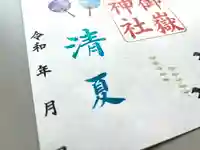 御嶽
神社
清夏
令和 年 月